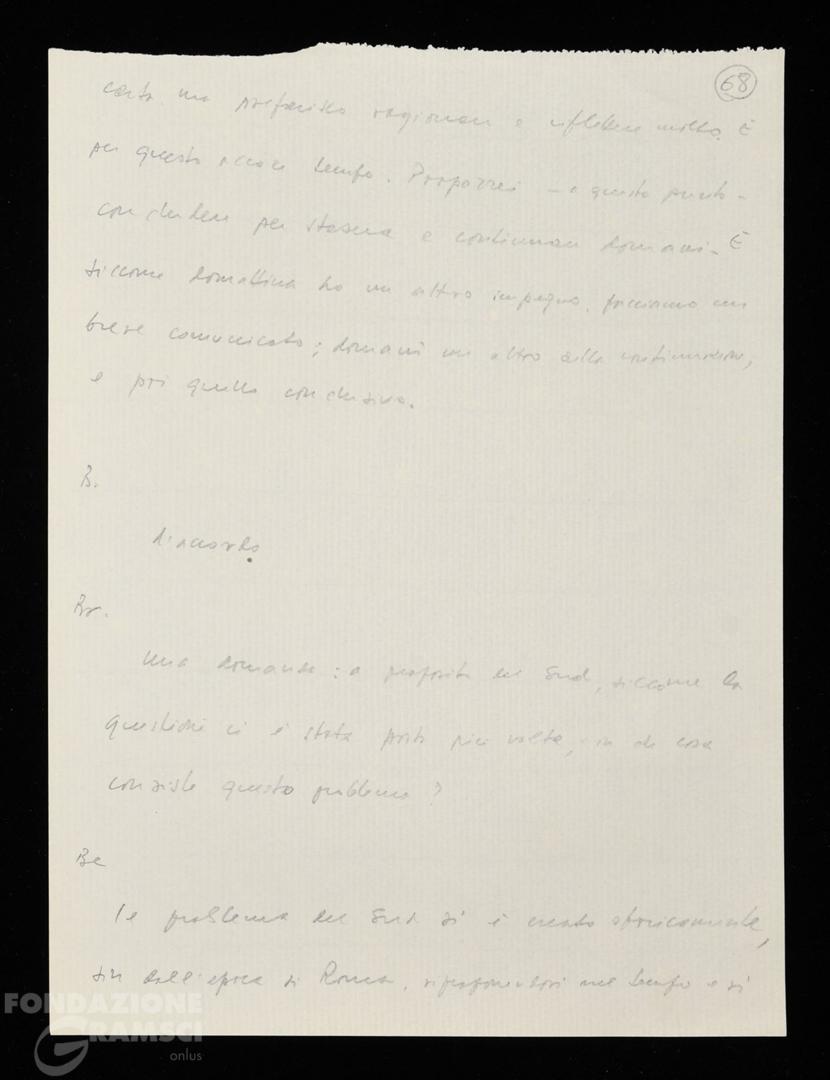 68
carta ma preferisco ragionare e riflettere molto. E
per questo occorre tempo. Proporrei – a questo punto –
concludere per stasera e continuare domani. E
siccome domattina ho un altro impegno, facciamo un
breve comunicato; domani un altro sulla continuazione,
e poi quello conclusivo.
B.
D'accordo.
Br.
Una domanda: a proposito del Sud, siccome la
questione ci è stata posta più volte, in che cosa
consiste questo problema?
Be
Il problema del Sud si è creato storicamente,
sin dall'epoca di Roma, riproponendosi nel tempo e si
FONDAZIONE
GRAMSCI
onlus